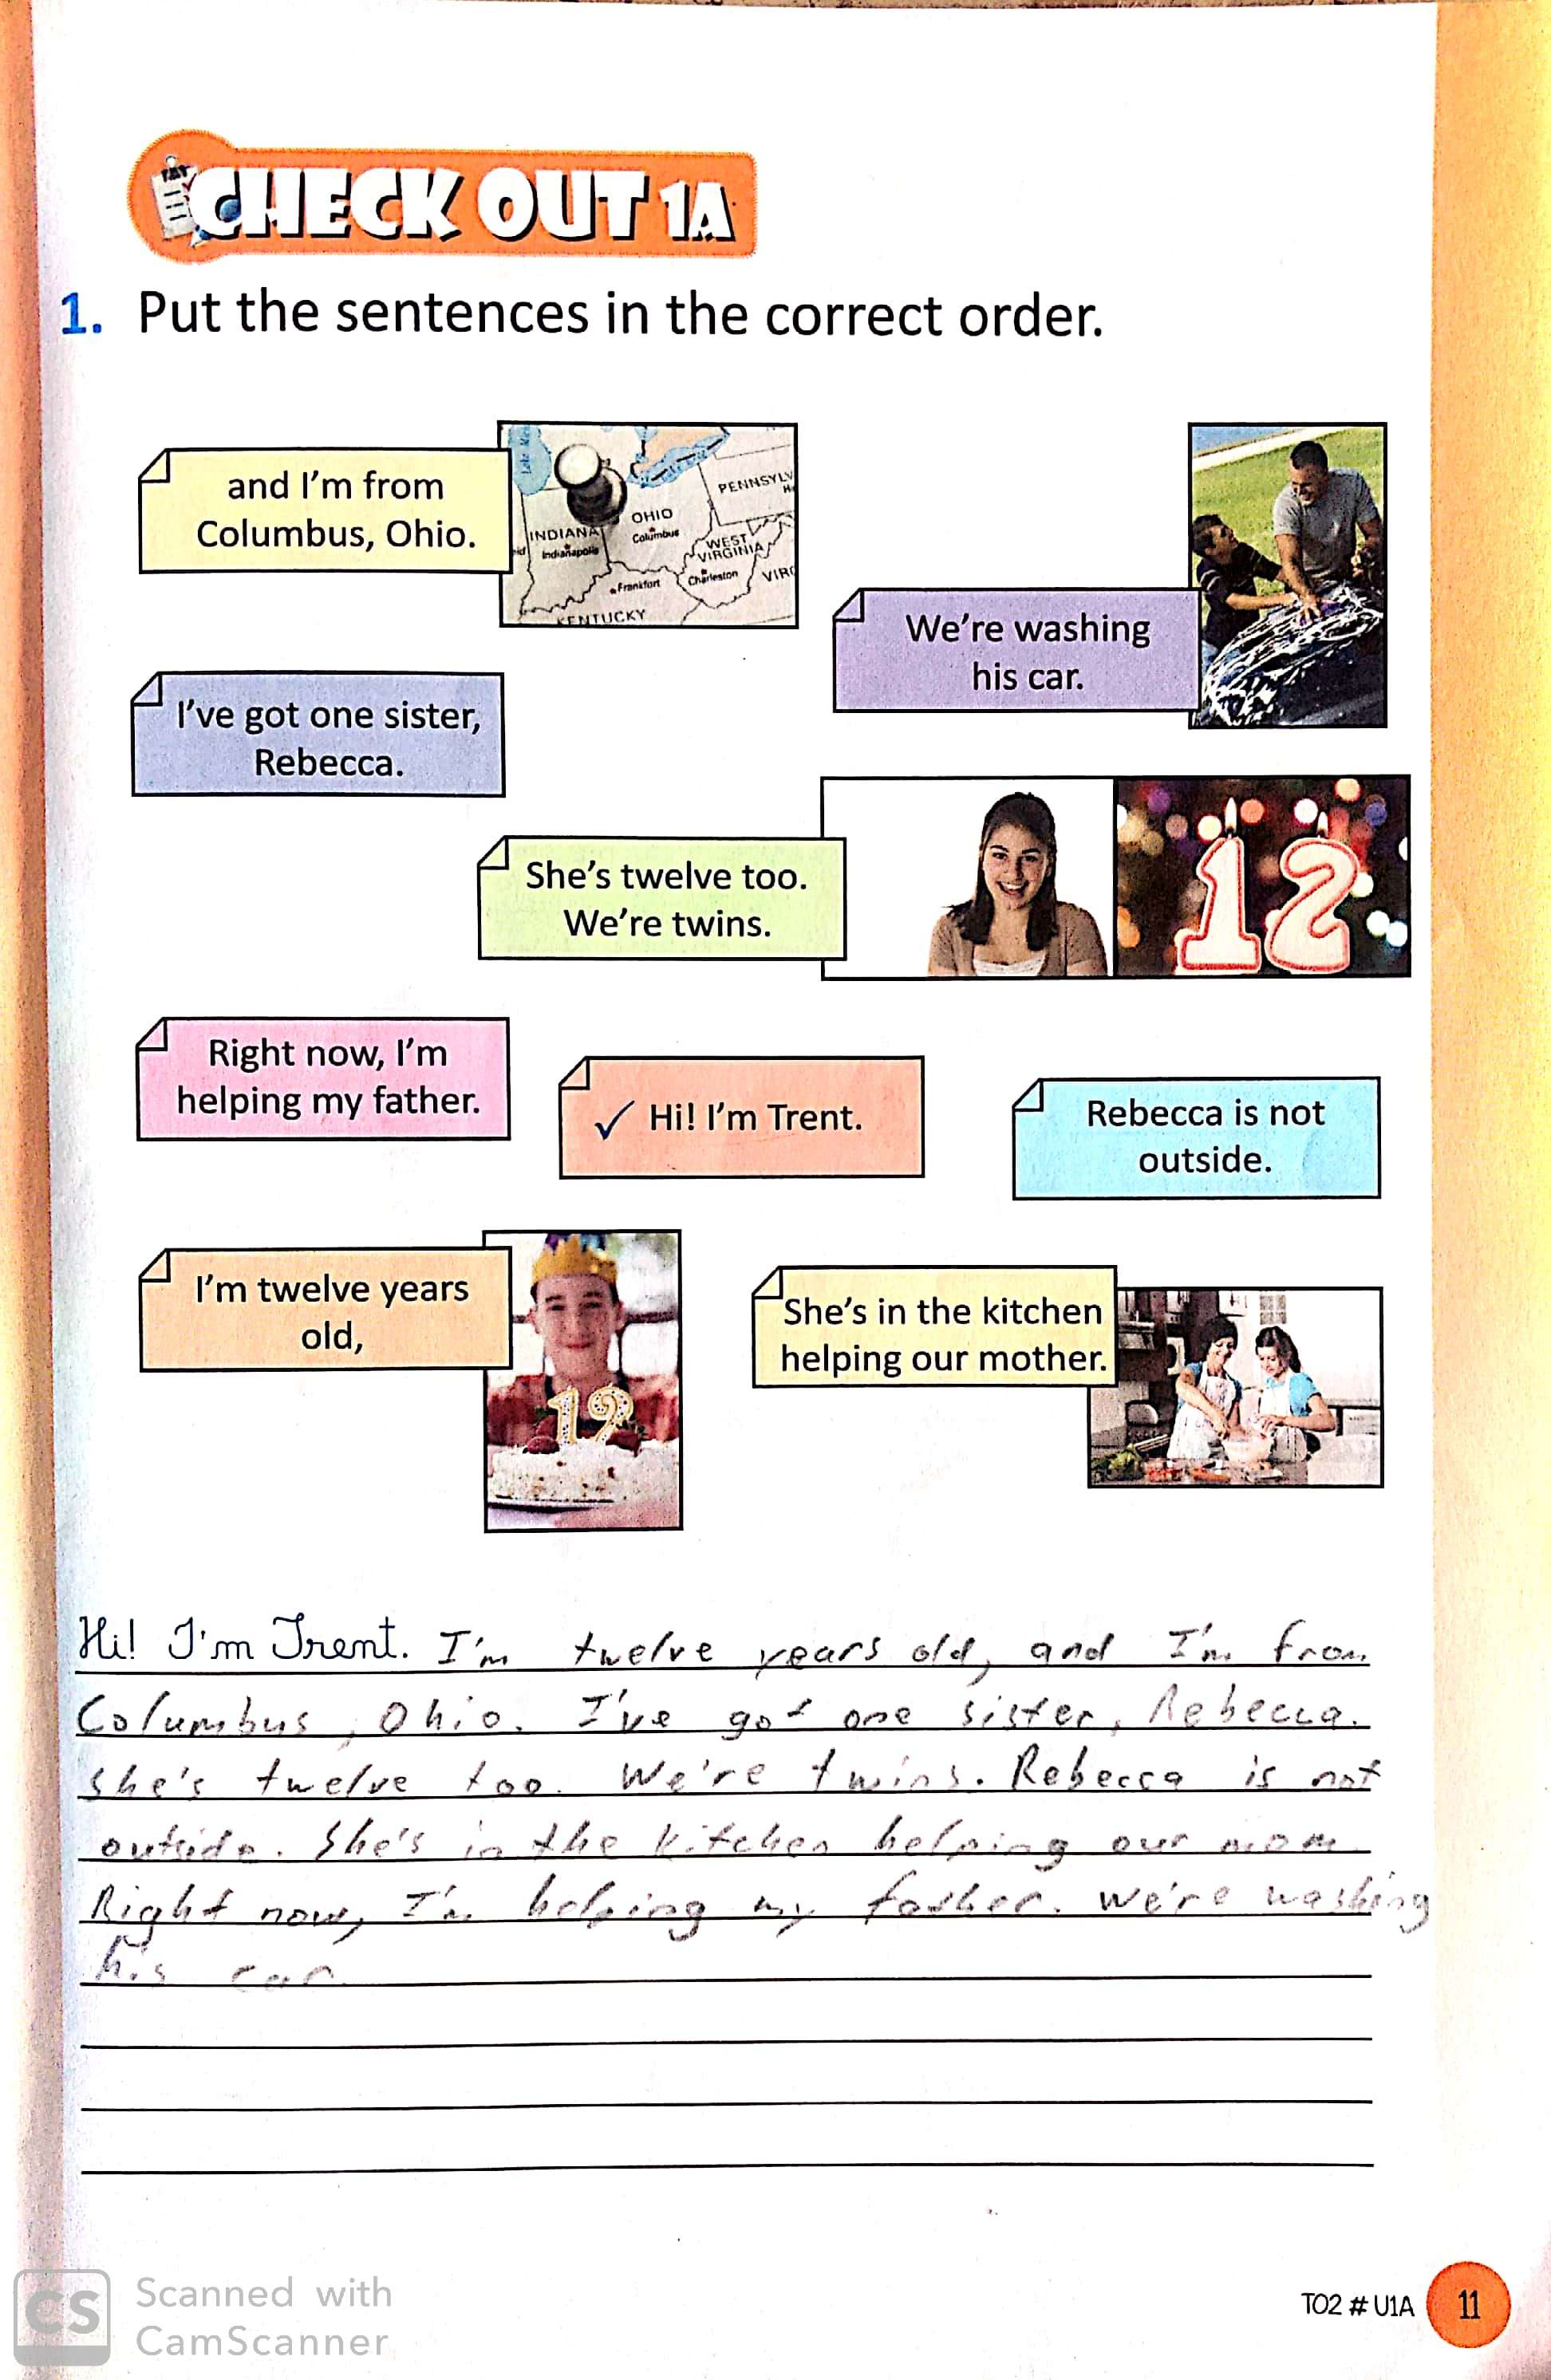 CHECK OUT 1A
1. Put the sentences in the correct order.
and I'm from
Columbus, Ohio.
PENNSYLV
OHIO
Columbus
INDIANA
Indianapolis
WEST
VIRGINIA
Charleston
VIRG
Frankfort
KENTUCKY
We're washing
his car.
I've got one sister,
Rebecca.
She's twelve too.
We're twins.
12
Right now, I'm
helping my father.
✓ Hi! I'm Trent.
Rebecca is not
outside.
I'm twelve years
old,
12
She's in the kitchen
helping our mother.
Hi! I'm Trent. I'm twelve years old, and I'm from
Columbus, Ohio. I've got one sister, Rebecca.
She's twelve too. We're twins. Rebecca is not
outside. She's in the kitchen helping our mom
Right now, I'm helping my father. We're washing
his car.
TO2 # U1A 11
CS Scanned with
CamScanner